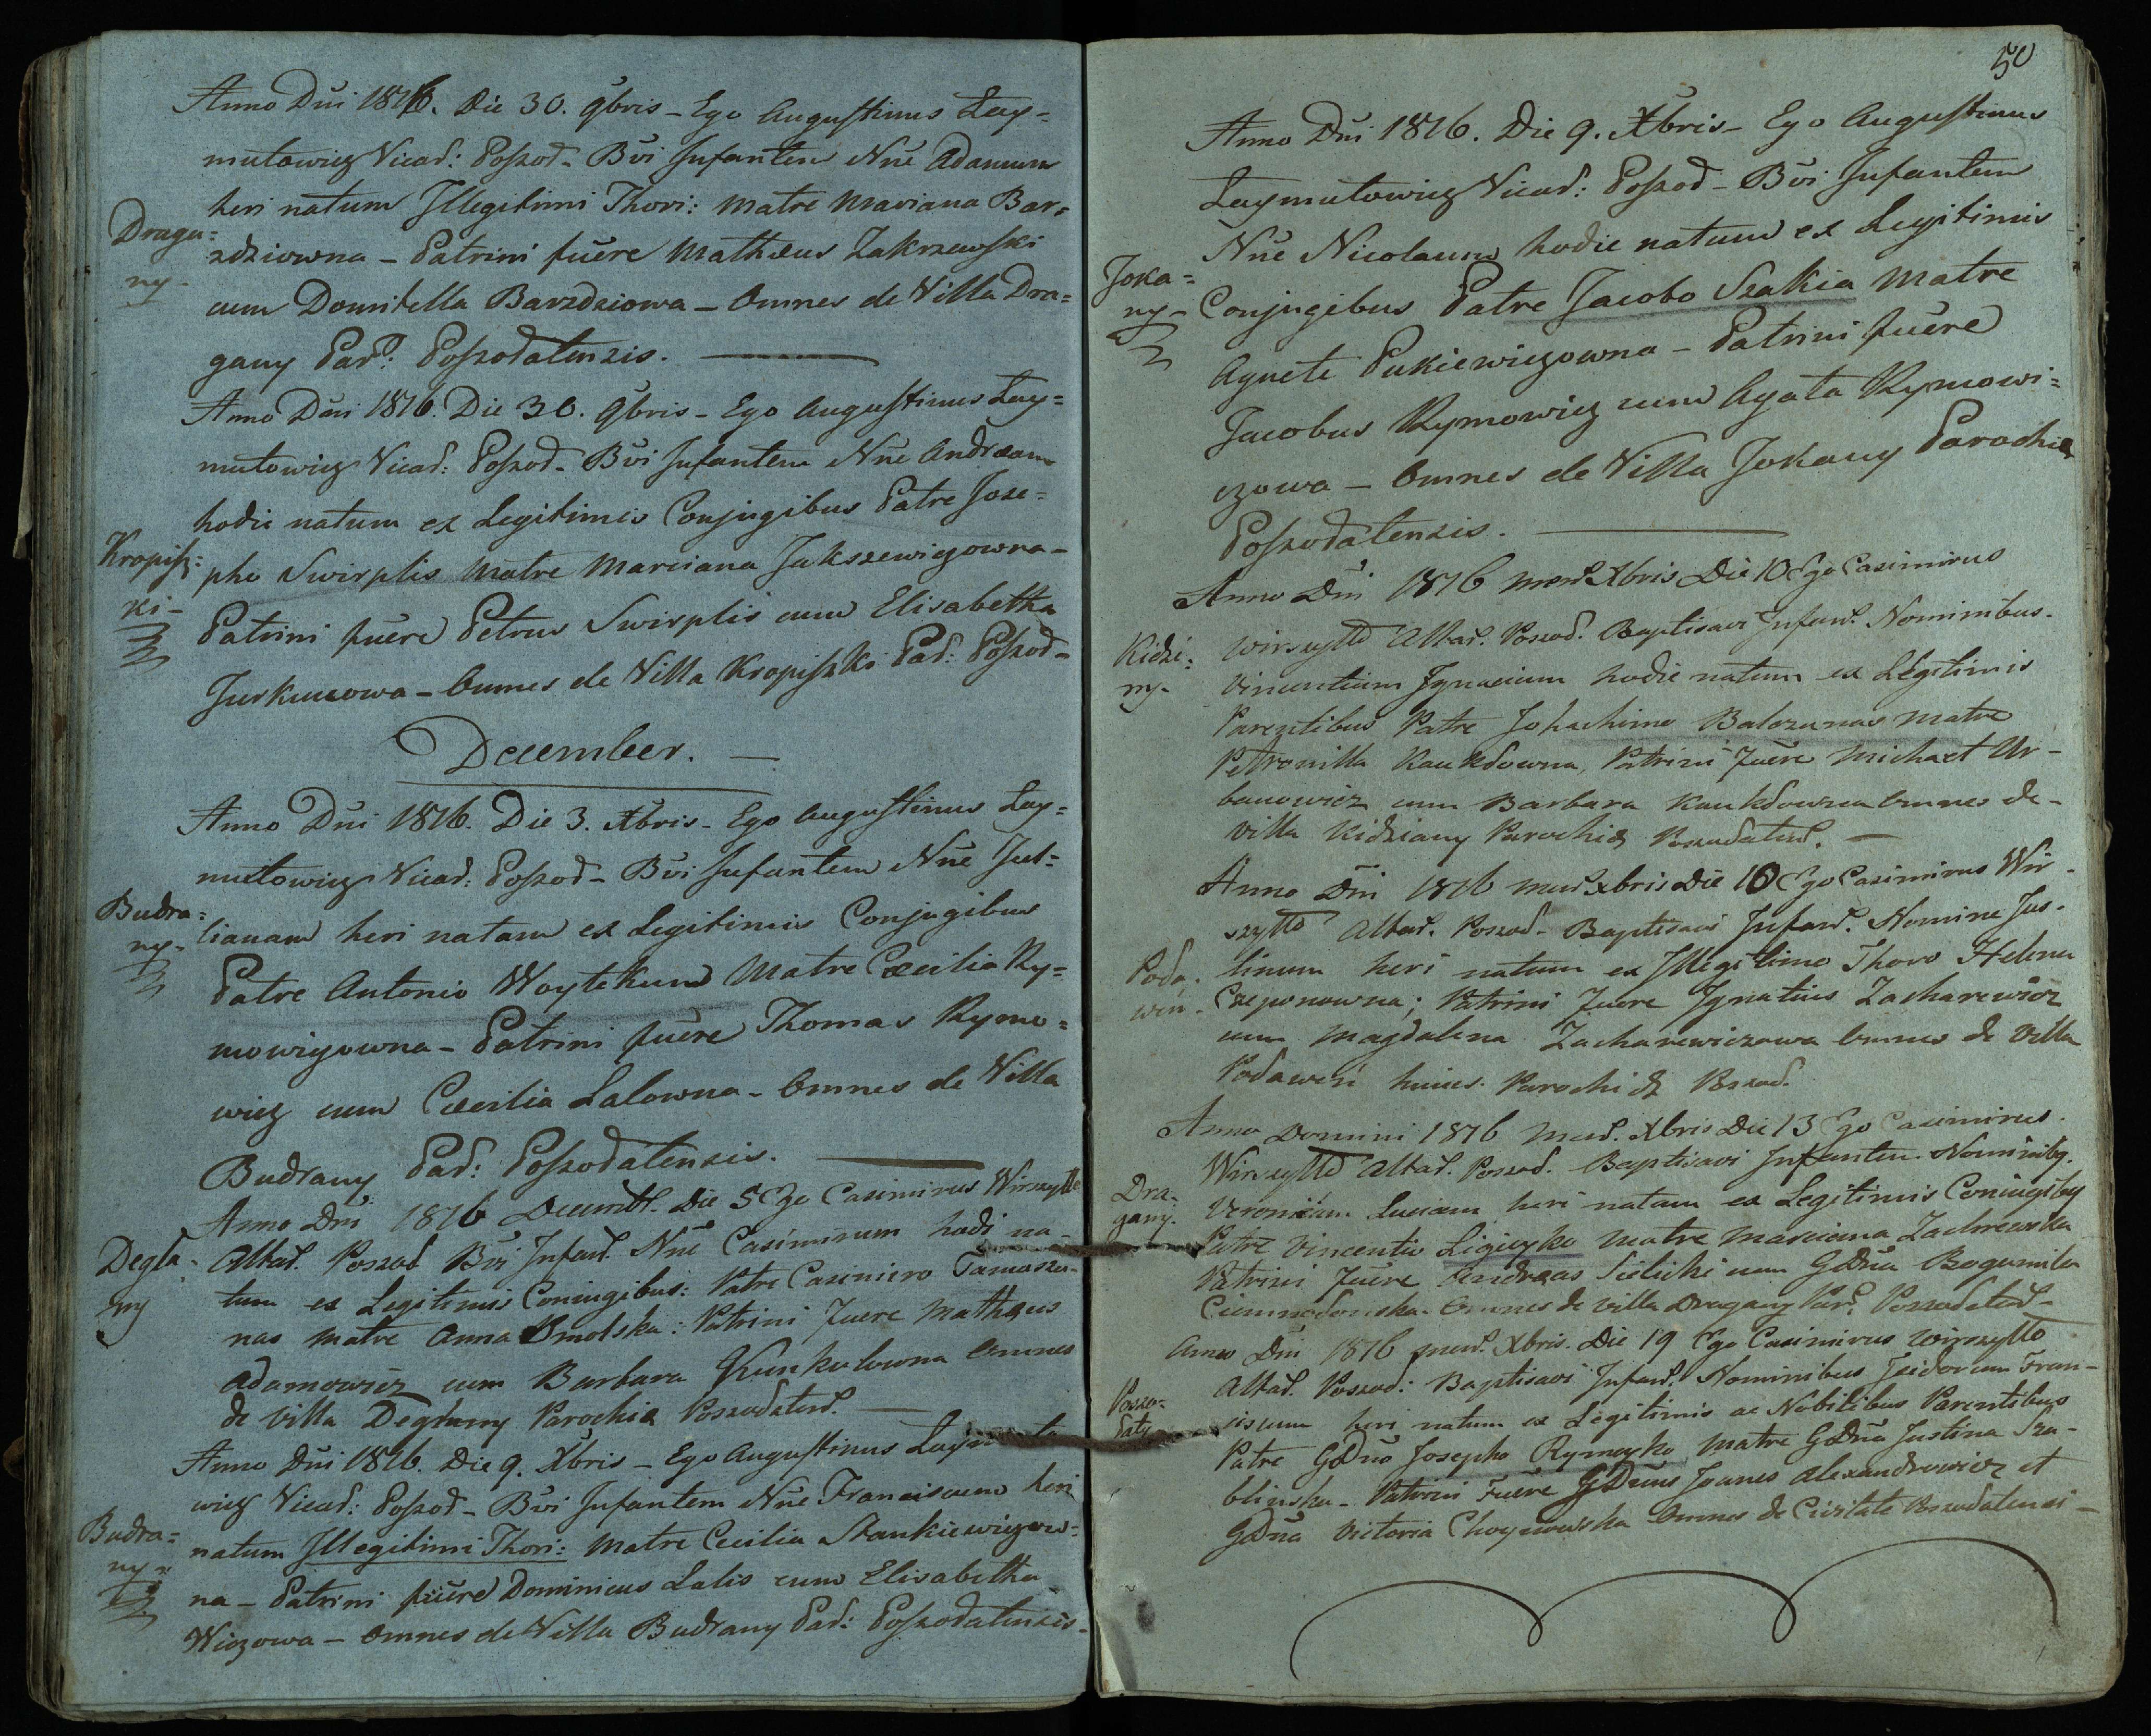 Anno Dni 1816. Die 30. 9bris - Ego Augustinus Lay=
mutowicz Vicar: Poszod - Bvi Infantem Nne Adamum
heri natum Illegitimi Thori: Matre Mariana Bar=
Draga=
ny -
zdziowna - Patrini fuere Mathæus Zakrzewski
cum Domitella Barzdziowa - Omnes de Villa Dra=
gany Par: Poszodatensis.
Anno Dni 1816. Die 30. 9bris - Ego Augustinus Lay=
mutowicz Vicar: Poszod - Bvi Infantem Nne Andræam
hodie natum ex Legitimis Conjugibus Patre Jose=
Kropisz=
ki -
pho Swirplis Matre Marciana Jakszewiczowna -
Patrini fuere Petrus Swirplis cum Elisabetha
Jurkunowa - Omnes de Villa Kropiszki Par: Poszod -
December.
Anno Dni 1816. Die 3. Xbris - Ego Augustinus Lay=
mutowicz Vicar: Poszod - Bvi Infantem Nne Jul=
Budra=
ny -
lianam heri natam ex Legitimis Conjugibus
Patre Antonio Woytekuns Matre Cæcilia Ry=
mowiczowna - Patrini fuere Thomas Rymo=
wicz cum Cæcilia Lalowna - Omnes de Villa
Budrany Par: Poszodatensis.
Anno Dni 1816 Decembr. Die 5 Ego Casimirus Wirszyłło
Degla-
ny
Altar. Poszod Bvi Infan. Nne Casimirum hodi na-
tum ex Legitimis Coniugibus: Patre Casimiro Tamasza-
nas Matre Anna Smolska: Patrini Fuere Mathæus
Adamowicz cum Barbara Kunkulowna Omnes
de Villa Deglany Parochiæ Poszodaten.
Anno Dni 1816. Die 9. Xbris - Ego Augustinus Laymuto
wicz Vicar: Poszod - Bvi Infantem Nne Franciscum heri
Budra=
ny -
natum Illegitimi Thori: Matre Cecilia Stankiewiczow=
na - Patrini fuere Dominicus Lalis cum Elisabetha
Wiczowa - Omnes de Villa Budrany Par: Poszodatensis -
50
Anno Dni 1816. Die 9. Xbris - Ego Augustinus
Laymutowicz Vicar: Poszod - Bvi Infantem
Nne Nicolaum hodie natum ex Legitimis
Joka=
ny -
Conjugibus Patre Jacobo Szakia Matre
Agnete Pukiewiczowna - Patrini fuere
Jacobus Rymowicz cum Agata Rymowi=
czowa - Omnes de Villa Jokany Parochiæ
Poszodatensis.
Anno Dni 1816 Men. Xbris Die 10 Ego Casimirus
Kidzi-
ny -
Wirszyłło Altar. Poszod. Baptisavi Infan. Nominibus
Vincentium Ignacium hodie natum ex Legitimis
Parentibus Patre Johachimo Balczunas Matre
Petronilla Kaukdowna, Patrini Fuere Michael Ur-
banowicz cum Barbara Kaukdowna Omnes de
Villa Kidziany Parochiæ Poszodaten.
Anno Dni 1816 Men. Xbris Die 10 Ego Casimirus Wir-
szyłło Altar. Poszod - Baptisavi Infan. Nomine Jus-
Poda-
win -
tinum heri natum ex Illegitimo Thoro Helena
Czeponowna; Patrini Fuere Ignatius Zacharewicz
cum Magdalena Zacharewiczowa Omnes de Villa
Podaweri huius Parochiæ Poszod.
Anno Domini 1816 Men. Xbris Die 13 Ego Casimirus
Wirszyłło Altar. Poszod. Baptisavi Infantem Nominibq.
Dra-
gany.
Veronicam Luciam heri natam ex Legitimis Coniugibq
Patre Vincentio Ligieyko Matre Marcianna Zachrewska
Patrini Fuere Andreas Sielicki cum GDna Bogumila
Ciemnodomska. Omnes de Villa Dragany Par. Poszodaten -
Anno Dni 1816 Men. Xbris. Die 19 Ego Casimirus Wirszyłło
Altar. Poszod: Baptisavi Infan. Nominibus Isidorum Fran-
Poszo-
daty
ciscum heri natum ex Legitimis ac Nobilibus Parentibus
Patre GDno Josepho Rymeyko Matre GDna Justina Sza-
blinska - Patrini Fuere GDnus Joanes Alexandrowicz et
GDna Victoria Choynowska Omnes de Civitate Poszodatensi -